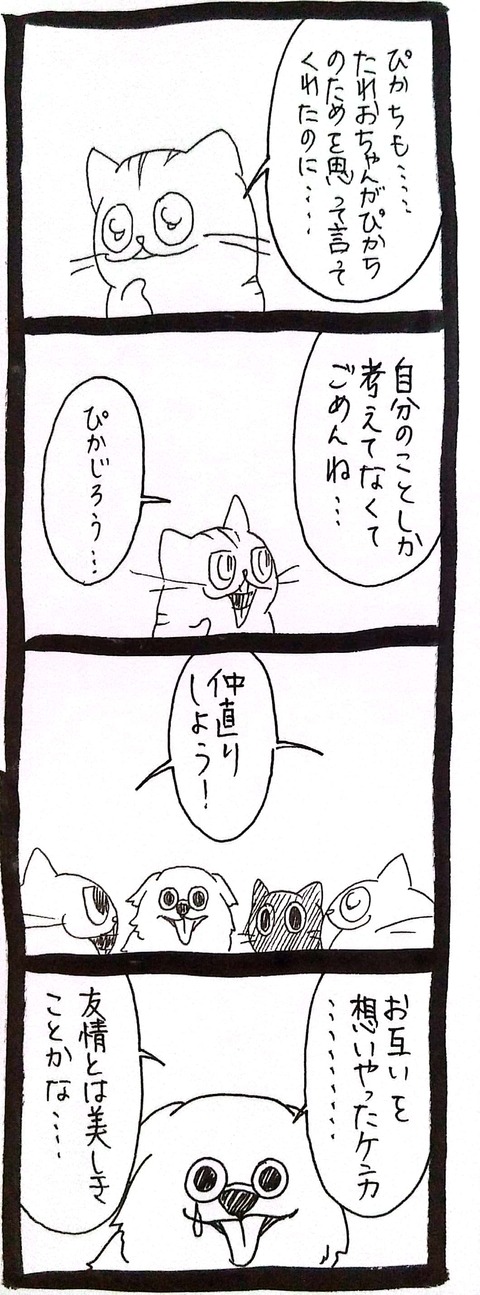 ぴかちも……
たれおちゃんがぴかち
のためを思って言って
くれたのに……
自分のことしか
考えてなくて
ごめんね…
ぴかじろう…
仲直り
しよう！
お互いを
想いやったケンカ
………
友情とは美しき
ことかな……